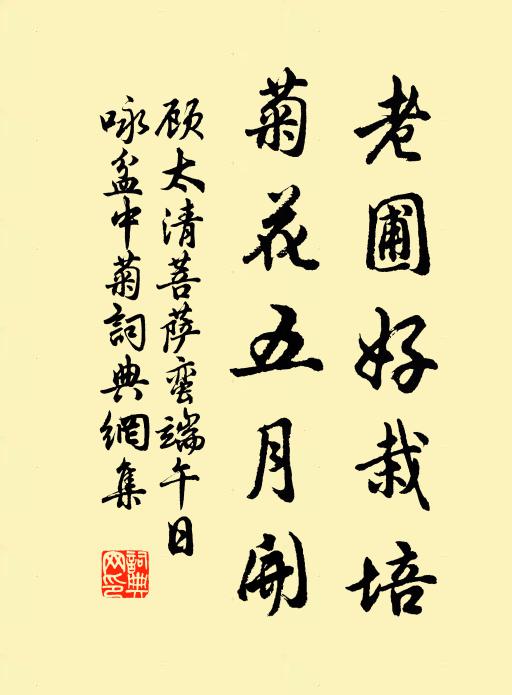 老圃好栽培
菊花五月開
顾太清菩萨蛮端午日
咏盆中菊詞典網集
詞典網印